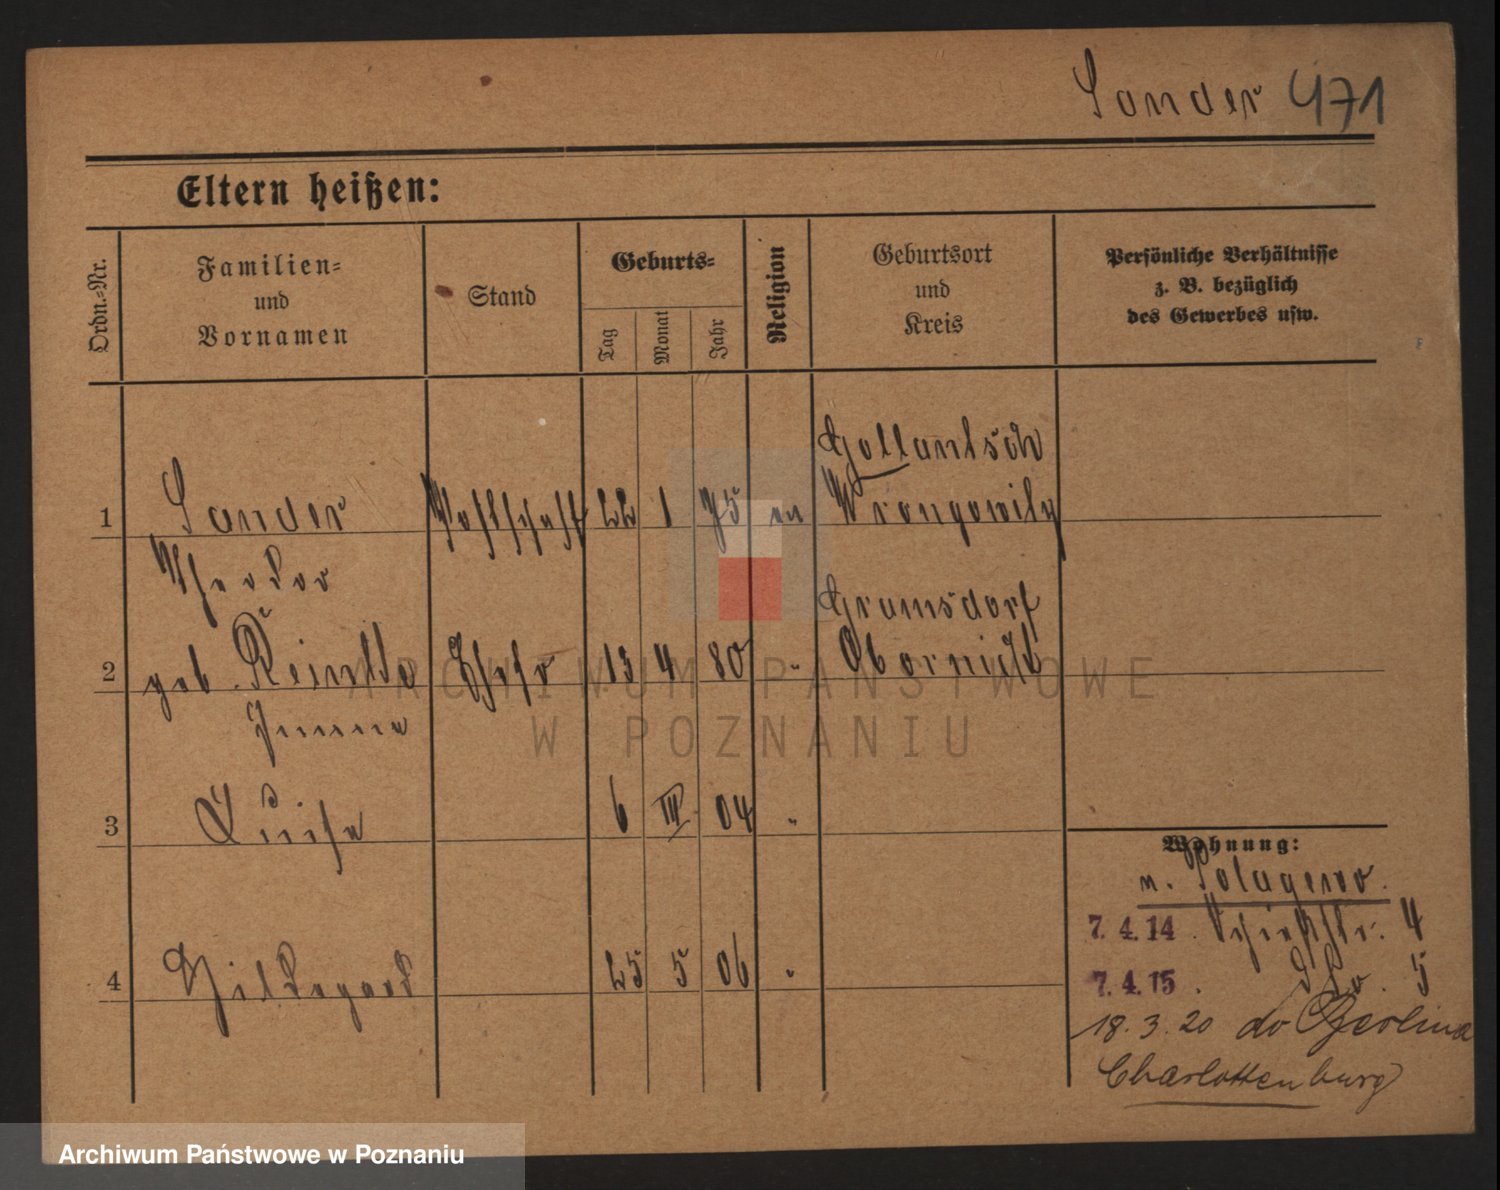 Sander 471
Eltern heißen:
Ordn.-Nr.
Familien-
und
Vornamen
Stand
Geburts-
Tag
Monat
Jahr
Religion
Geburtsort
und
Kreis
Persönliche Verhältnisse
z. B. bezüglich
des Gewerbes usw.
Gollantsch
1 Sander Postschaff 22 1 75 ev Wrongowitz
Theodor
Gramsdorf
2 geb. Ehefr 13 4 80 " Obornick
3 Luise 6 III 04 "
Wohnung:
n.
7. 4. 14. Schießstr. 4
4 Hildegard 25 5 06 "
7. 4. 15. dto. 5
18. 3. 20 do Berlina
Charlottenburg
ARCHIWUM PAŃSTWOWE
W POZNANIU
Archiwum Państwowe w Poznaniu